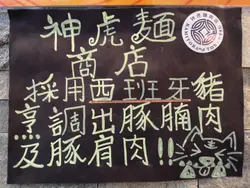 神虎麵
商店
採用西班牙豬
烹調出豚腩肉
及豚肩肉!!